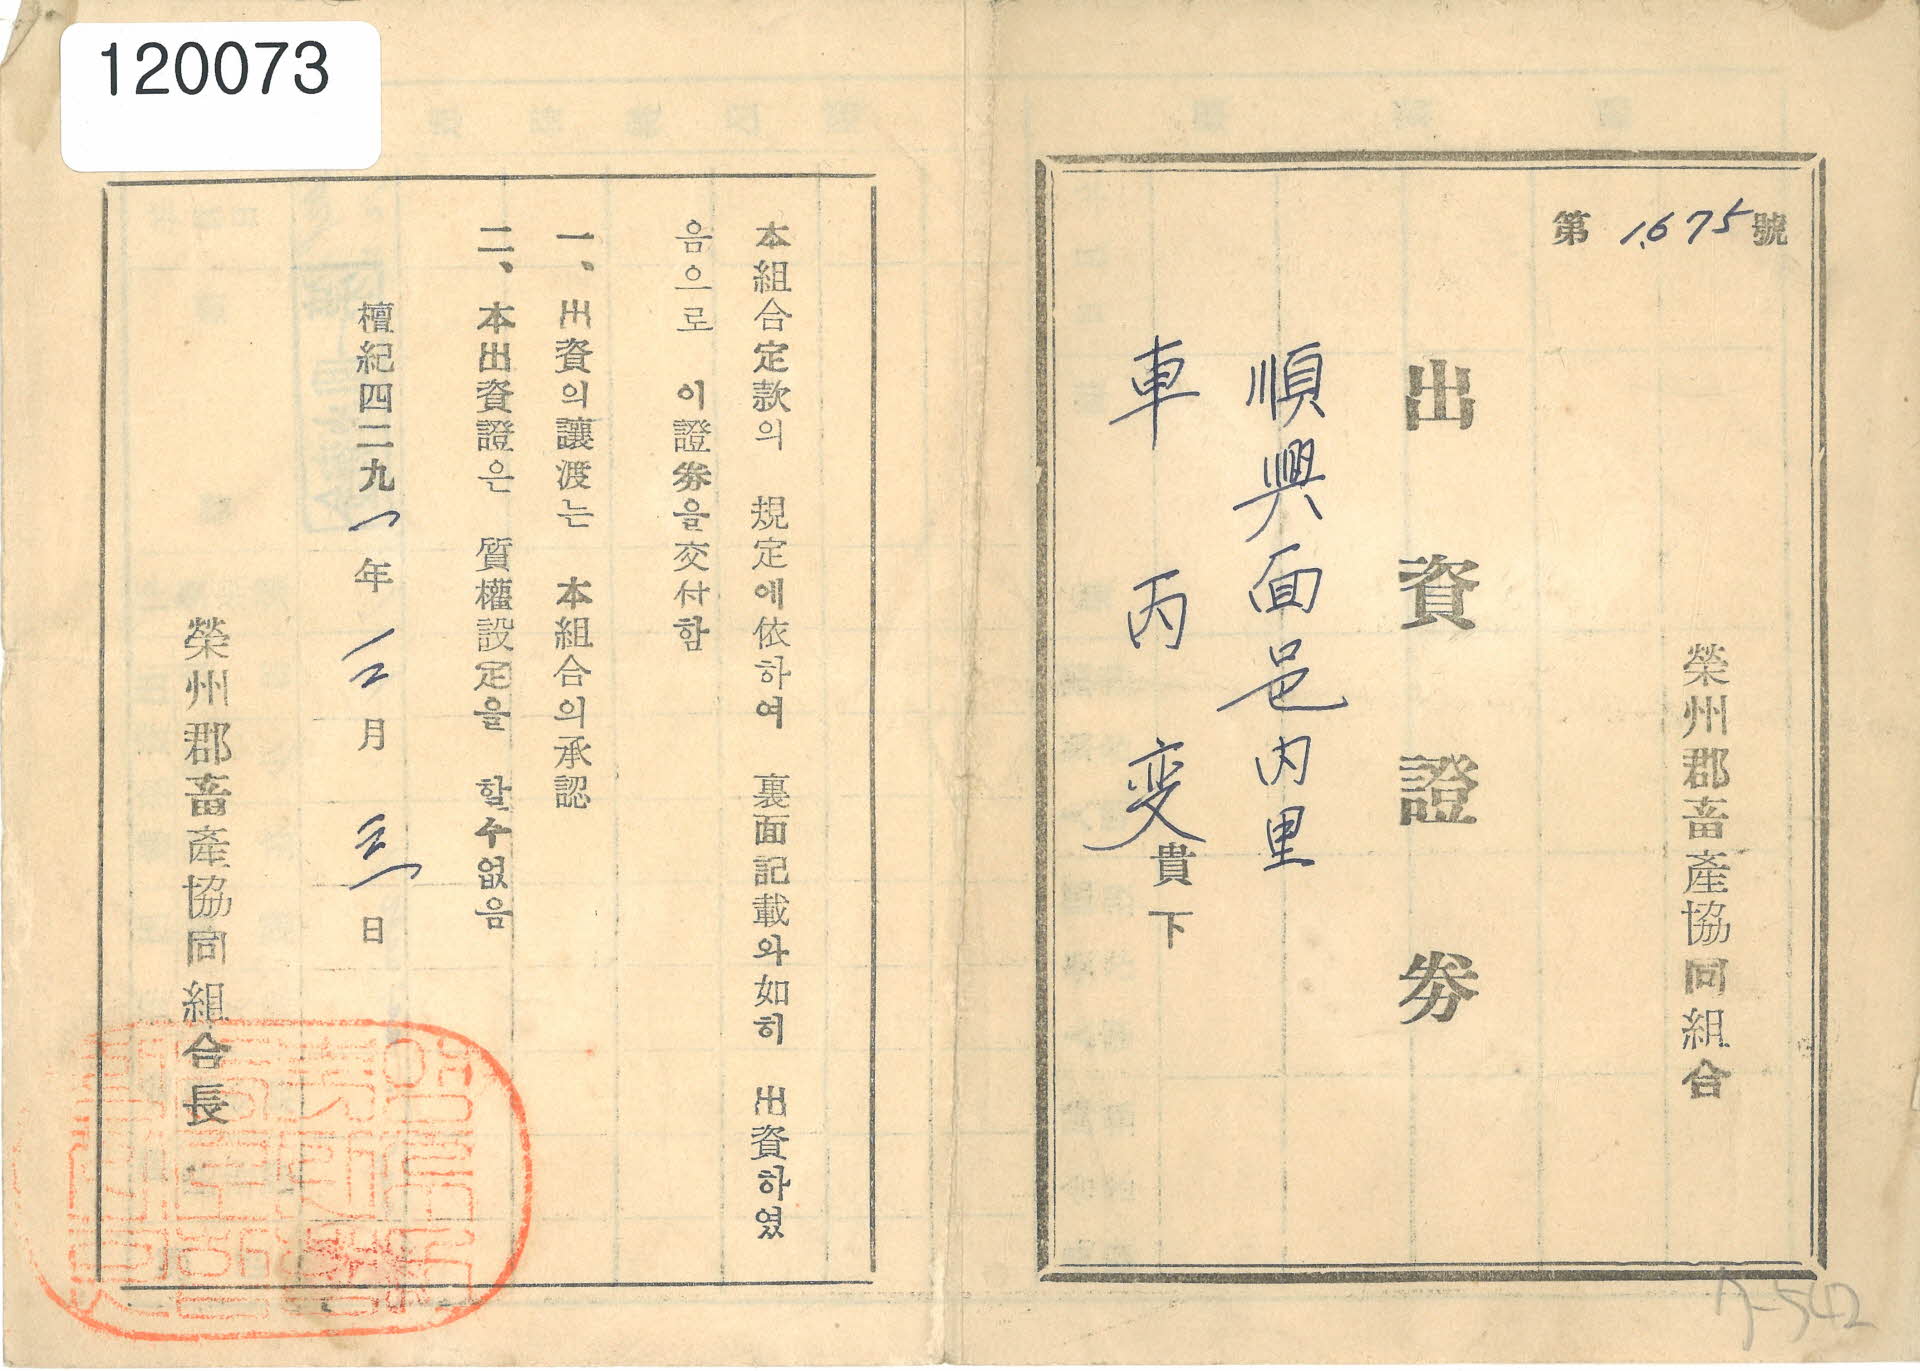 120073
第 1,675 號
榮州郡畜產協同組合
出資證券
順興面邑內里
車丙変 貴下
本組合定款의 規定에依하여 裏面記載와如히 出資하였
음으로 이證券을交付함
一、出資의讓渡는 本組合의承認
二、本出資證은 質權設定을 할수없음
檀紀四二九一年 三月 三一日
榮州郡畜產協同組合長
가-542